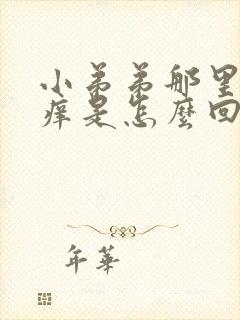 小弟弟那里
痒是怎麼回
年華